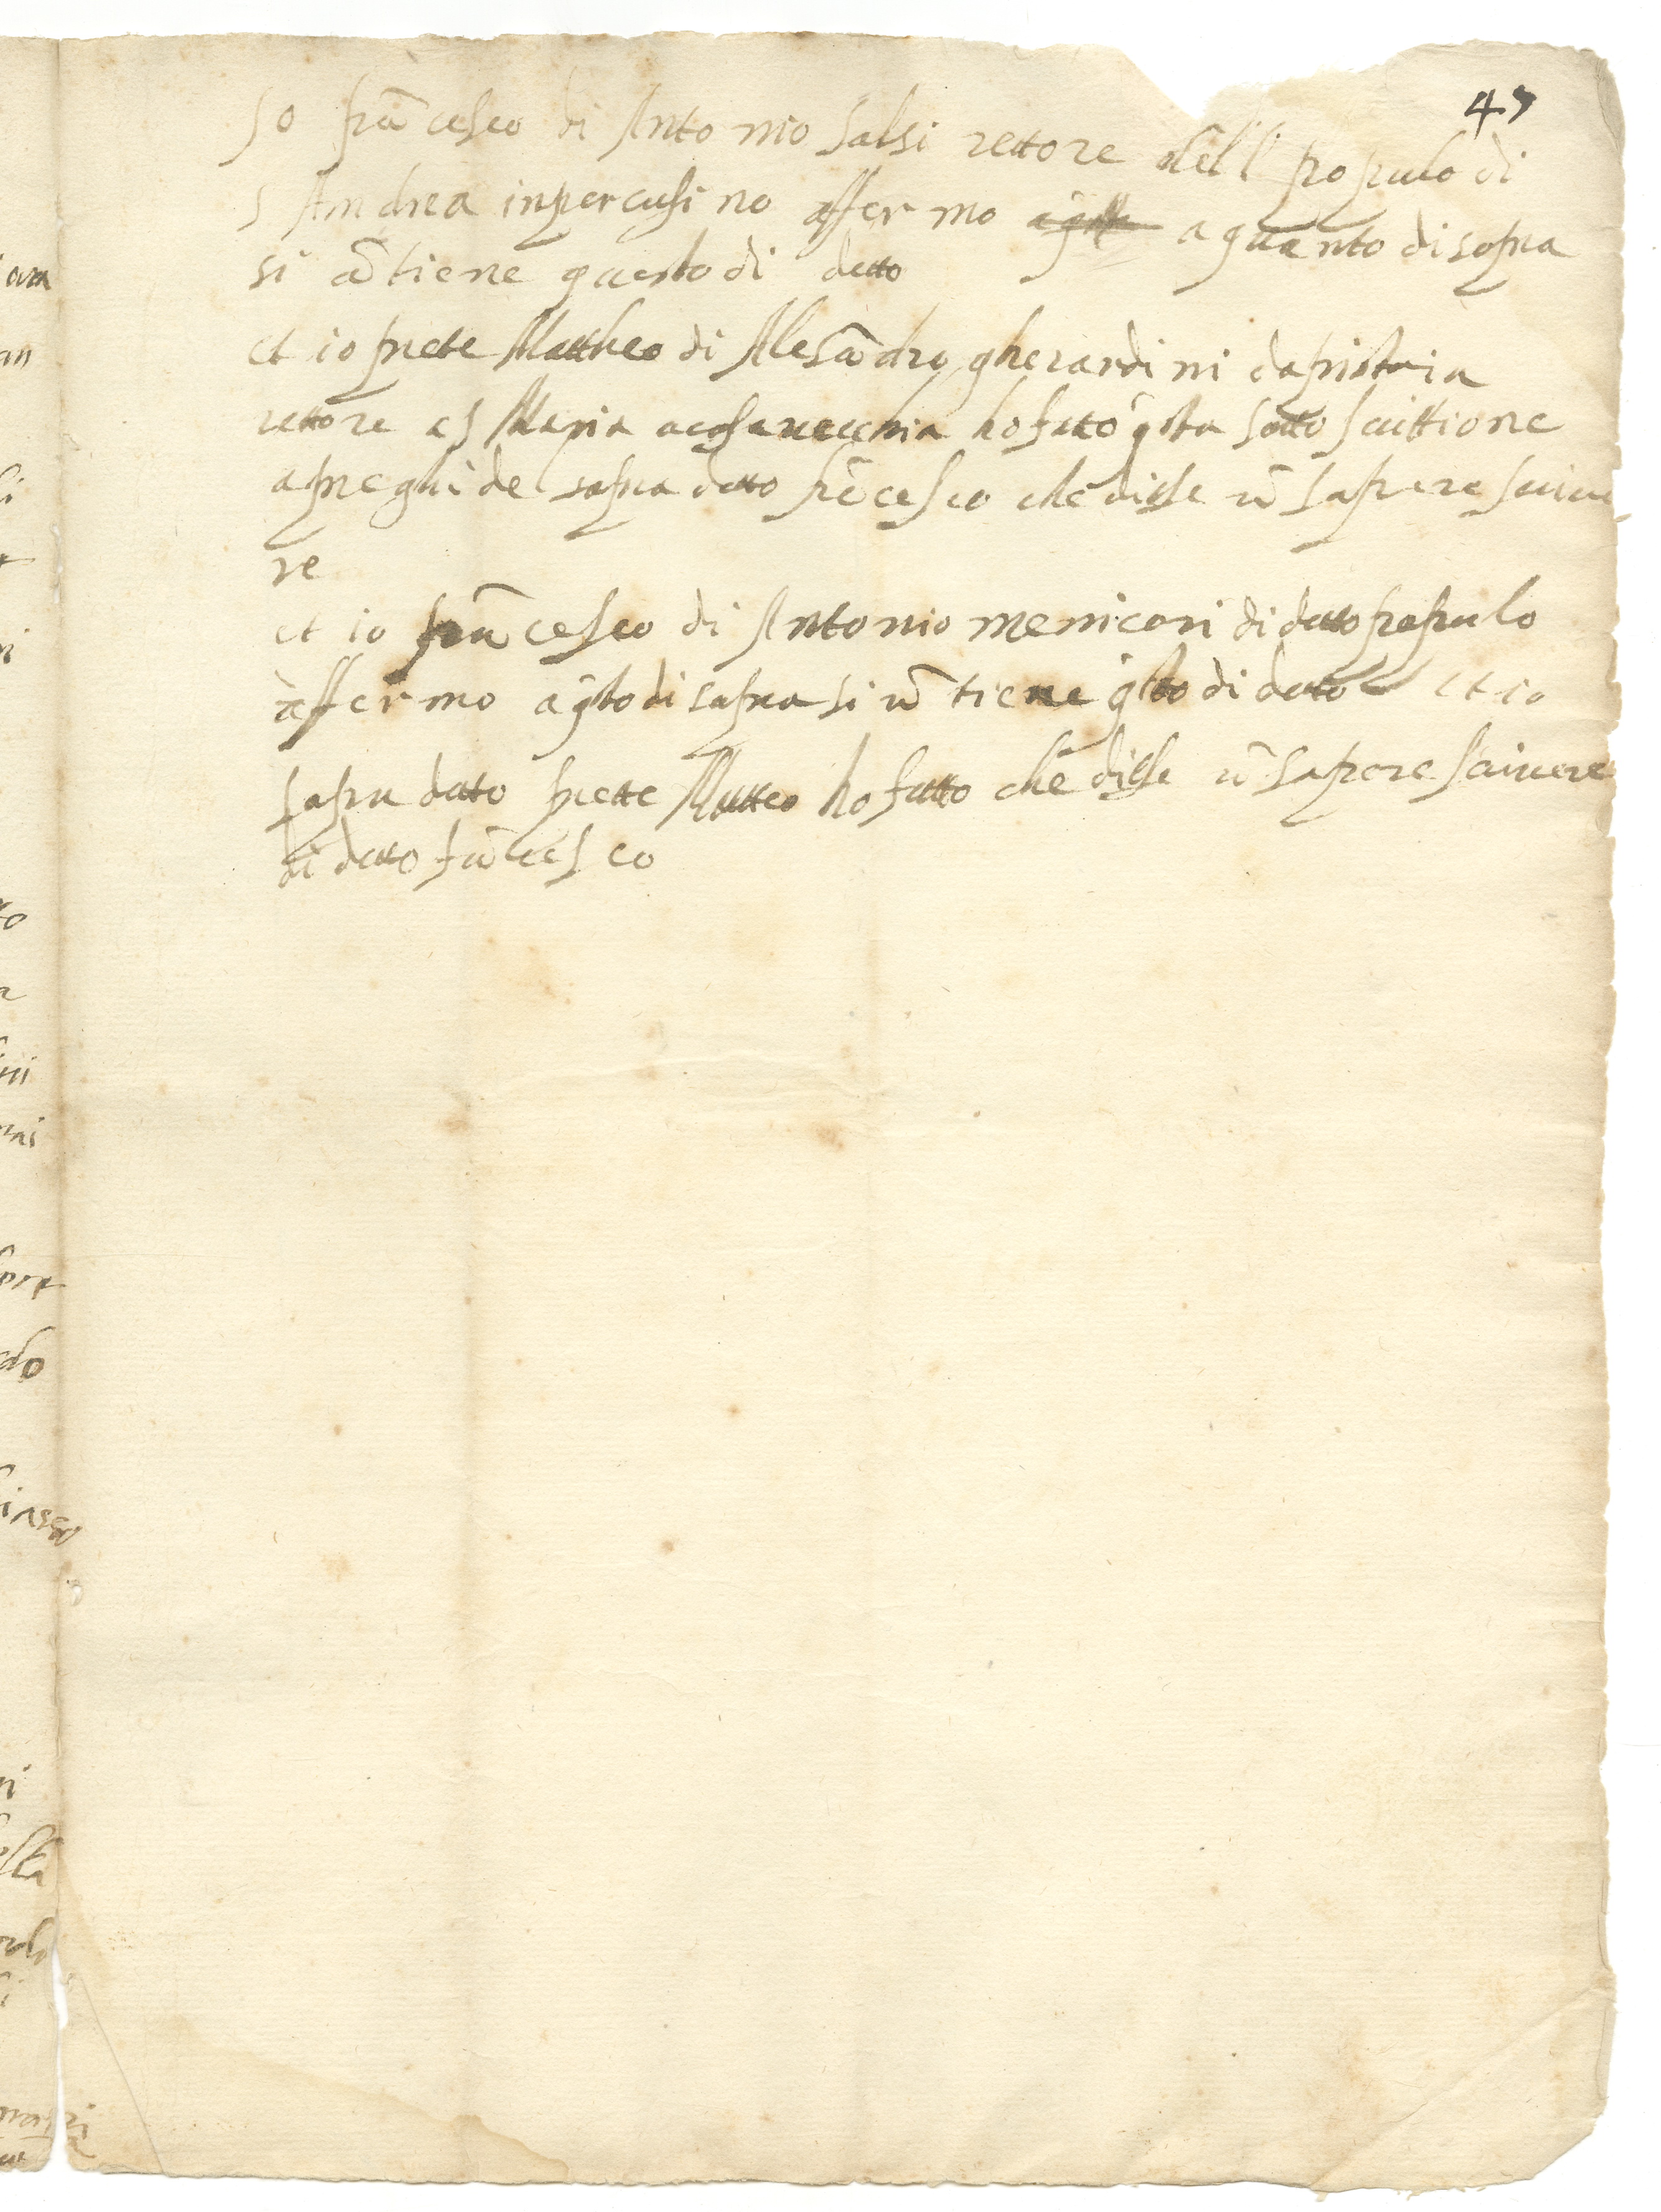 47
Io frācesco di Antonio salsi rettore dell popolo di
S Andrea inpercusino affermo a quanto di sopra
si cōtiene questo di detto
et io prete Mattheo di Alesādro gherardini da pistoia
rettore a S Maria a casavecchia ho fatto q̄sta sotto scrittione
a preghi del sopra detto frācesco che disse nō sapere scrive
re
et io frācesco di Antonio menicori di detto popolo
affermo a q̄to di sopra si cōtiene q̄sto di detto et io
sopra detto prette Matteo ho fatto che disse nō sapere scrivere
di detto frācesco